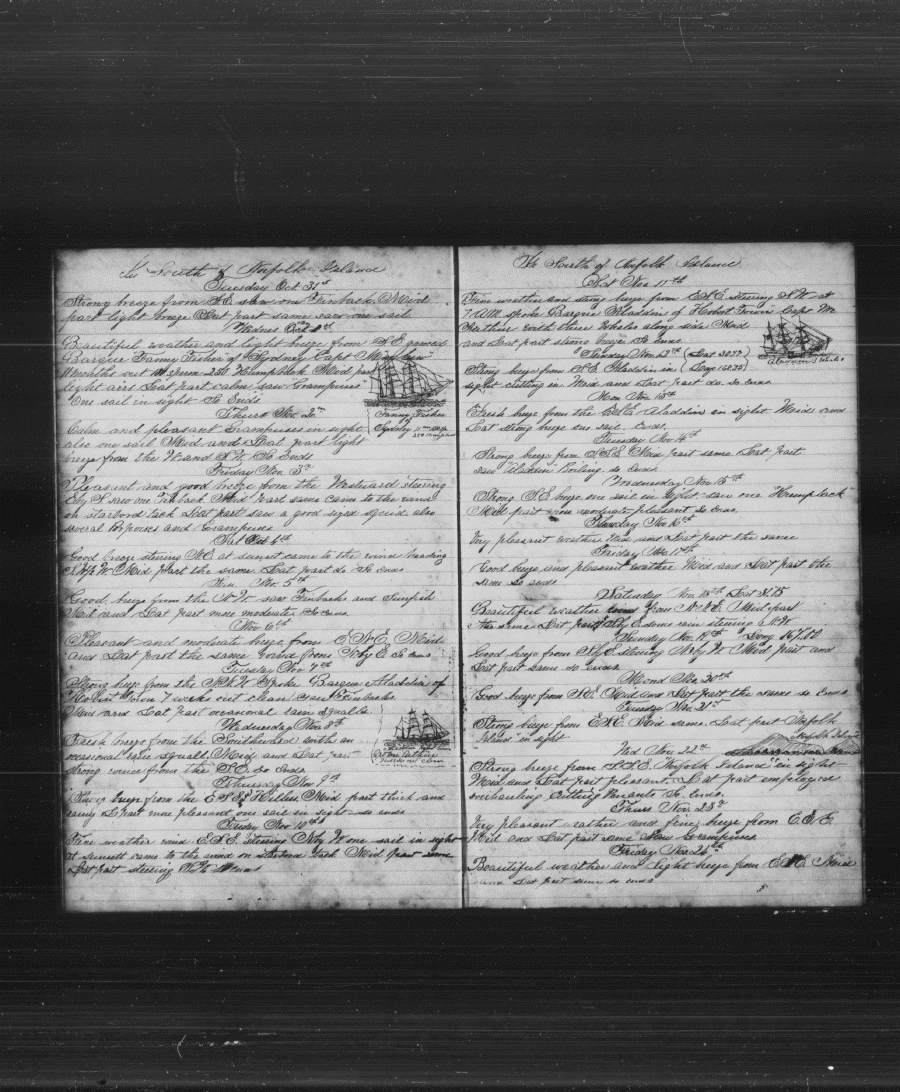 To South of Norfolk Island
Tuesday Oct 31st
Strong breeze from S.E. saw one Finback Mid
part light breeze Lat part same saw one sail
Wednes
Beautiful weather and light breeze from S.E. gamed
Barque Fanny Fisher of Sydney Capt
11 months out 250 Humpback Mid part
light airs Lat part calm saw Grampuses
One sail in sight So Ends
Thurs Nov 2nd
Calm and pleasant Grampuses in sight
also one sail Mid and Lat part light
breeze from the W and S.W. So Ends
Fanny Fisher
Sydney 11 mos
Friday Nov. 3rd
Pleasant and good breeze from the Westward steering
E by S saw one Finback Mid part same came to the wind
on Starbord tack Lat part saw a good sized squid also
several Porpuses and Grampuses
Sat 4th
Good breeze steering at sunset came to the wind heading
Mid part the same Lat part do So ends
Nov. 5th
Good breeze from the saw Finbacks and Sunfish
Mid and Lat part more moderate So ends
Nov 6th
Pleasant and moderate breeze from Mid
and Lat part the same wind from So ends
Tuesday Nov 7th
Strong breeze from the Spoke Barque of
Hobart Town 7 weeks out clean saw Finbacks
Mid and Lat part occasional rain squalls
Wednesday Nov 8th
Fresh breeze from the Southward with an
occasional rain squall Mid and Lat part
Strong winds from the S.E. So Ends
7 weeks out clean
Thursday Nov 9th
Strong breeze from the Mid part thick and
rainy L part more pleasant one sail in sight so ends
Friday Nov 10th
Fine weather wind E.S.E. steering N by W one sail in sight
at sunset came to the wind on starbord tack Mid part same
Lat part steering ends
To South of Norfolk Island
Sat Nov 11th
Fine weather and strong breeze from E.S.E. steering S.W. at
7 A.M. spoke Barque Aladdin of Hobart Town Capt Mc
with three Whales along side Mid
and Lat part strong breeze So Ends
Aladdin 3 Whales
Sunday Nov 12th (Lat
Strong breeze from S.E. Aladdin in (Long
sight cutting in. Mid and Lat part do. so ends
Mon Nov 13th
Fresh breeze from the Aladdin in sight Mid and
Lat strong breeze one sail. Ends
Tuesday Nov 14th
Strong breeze from Mid part same Lat part
saw Aladdin Boiling so Ends
Wednesday Nov 15th
Strong S.E. breeze one sail in sight saw one "Humpback"
Mid part more moderate pleasant so ends.
Thursday Nov 16th
Very pleasant weather Mid and Lat part the same
Friday Nov 17th
Good breeze and pleasant weather Mid and Lat part the
same so ends
Saturday Nov 18th Lat
Beautiful weather from Mid part
the same Lat part some rain steering N.W.
Sunday Nov. 19th Long
Good breeze from steering N by W Mid part and
Lat part same so ends.
Mond Nov 20th
Good breeze from S.E. Mid and Lat part the same so ends
Tuesday Nov. 21st
Strong breeze from Mid same. Lat part Norfolk
Island in sight
Norfolk Island
Wed Nov 22nd
Strong breeze from Norfolk Island in sight
Mid and Lat part pleasant. Lat part employed in
overhauling Cutting So Ends.
Thurs Nov. 23rd
Very Pleasant weather and fine breeze from
Mid and Lat part same Saw Grampuses
Friday Nov. 24th
Beautiful weather and Light breeze from Mid
and Lat part same so ends